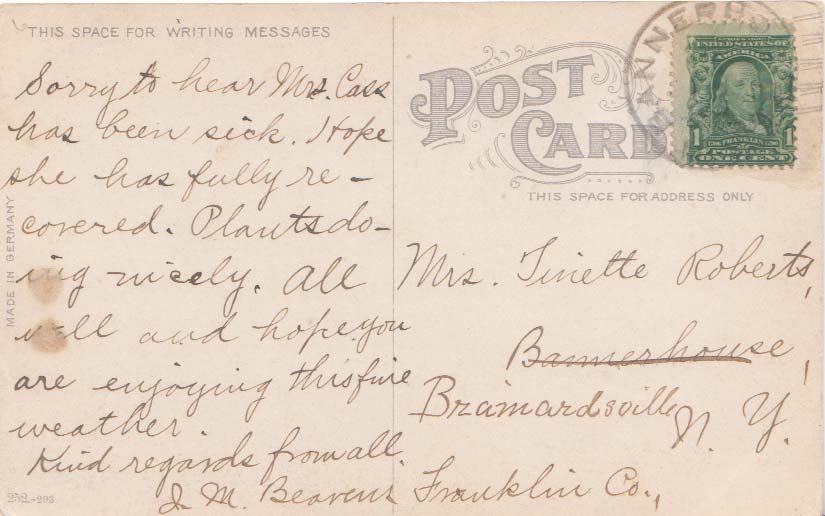 THIS SPACE FOR WRITING MESSAGES
Sorry to hear Mrs. Cass
has been sick. Hope
she has fully re-
covered. Plants do-
ing nicely. All
well and hope you
are enjoying this fine
weather.
Kind regards from all.
J. M. Beavens
MADE IN GERMANY
252-293
POST
CARD
THIS SPACE FOR ADDRESS ONLY
ANNERHO
SERIES 1902
UNITED STATES OF
AMERICA
1 FRANKLIN 1
POSTAGE
ONE CENT
Mrs. Tinette Roberts,
Bannerhouse,
Brainardsville
N. Y.
Franklin Co.,